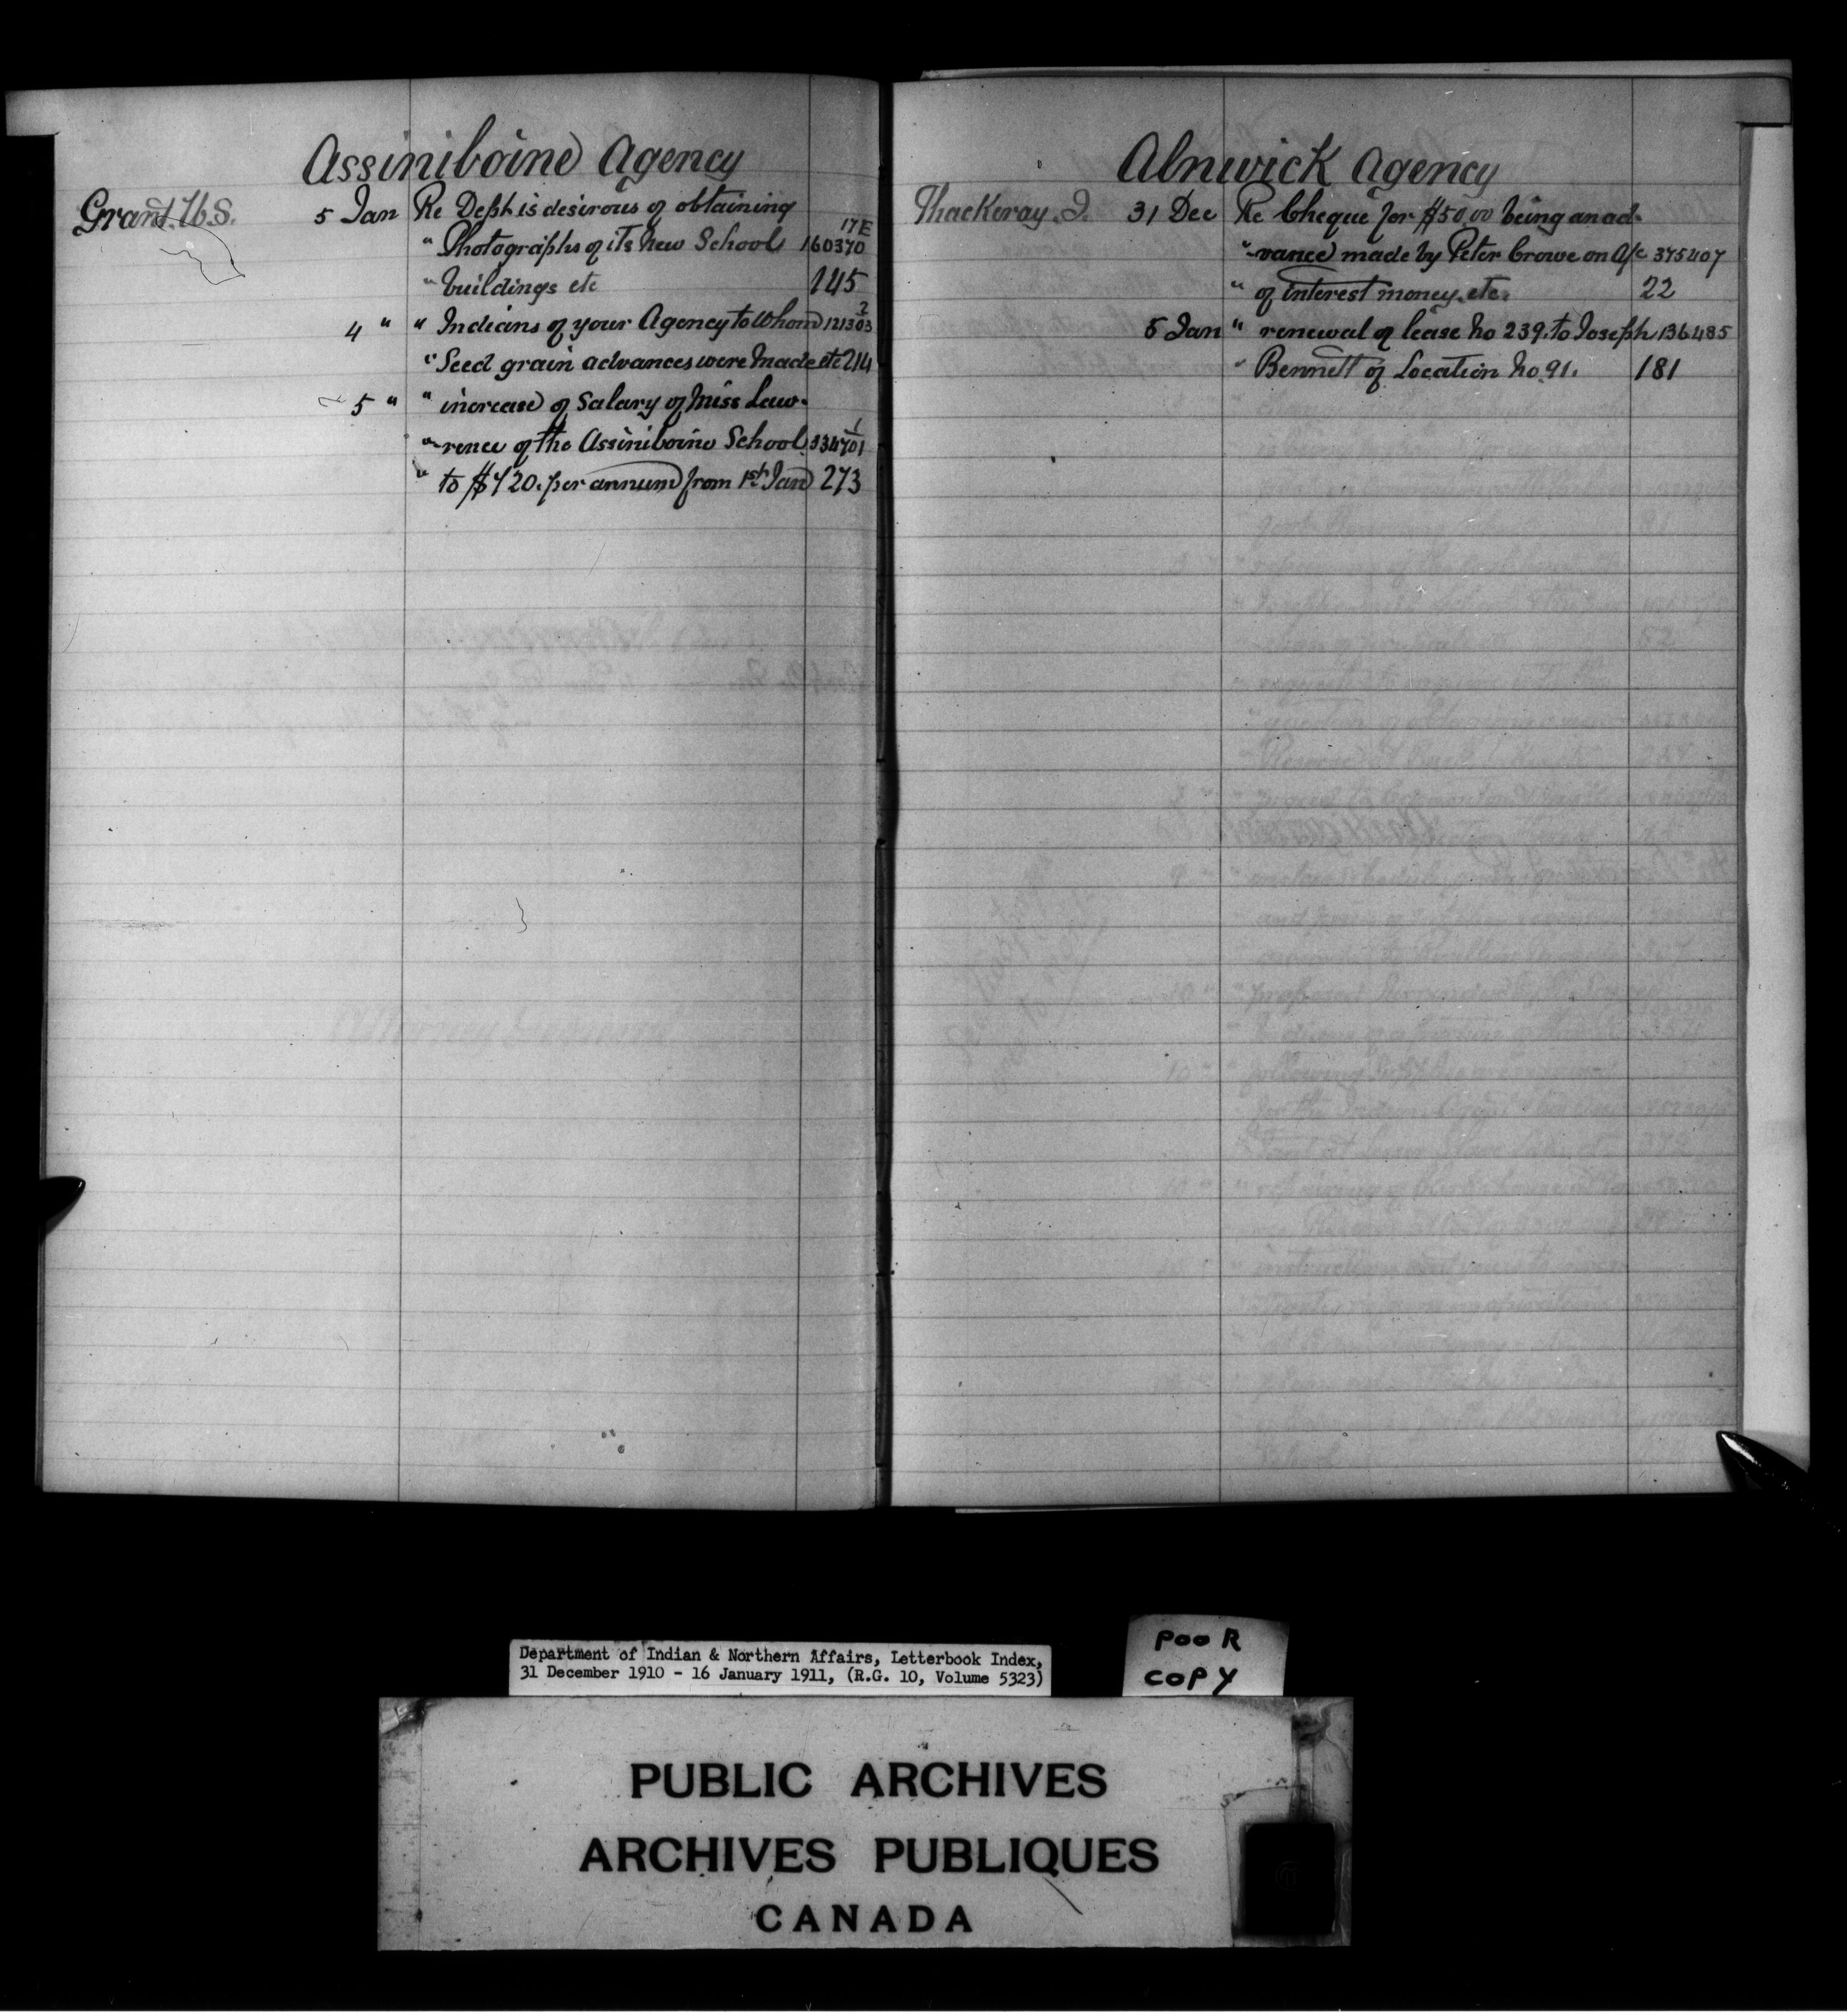 Assiniboine Agency
Grant. W.S. 5 Jan Re Dept. is desirous of obtaining 17E
" Photographs of its New School 160370
" buildings etc 145
4 " " Indians of your Agency to whom 121303 2
" Seed grain advances were made etc 214
5 " " increase of Salary of Miss Law-
"-rence of the Assiniboine School 334701 1
" to $420. per annum from 1st Jan 273
Alnwick Agency
Thackeray. J. 31 Dec Re Cheque for $50.00 being an ad-
"-vance made by Peter Crowe on A/c 375407
" of interest money. etc. 22
5 Jan " renewal of lease No 239. to Joseph 136485
" Bennett of Location No. 91. 181
Department of Indian & Northern Affairs, Letterbook Index,
31 December 1910 - 16 January 1911, (R.G. 10, Volume 5323)
POOR
COPY
PUBLIC ARCHIVES
ARCHIVES PUBLIQUES
CANADA